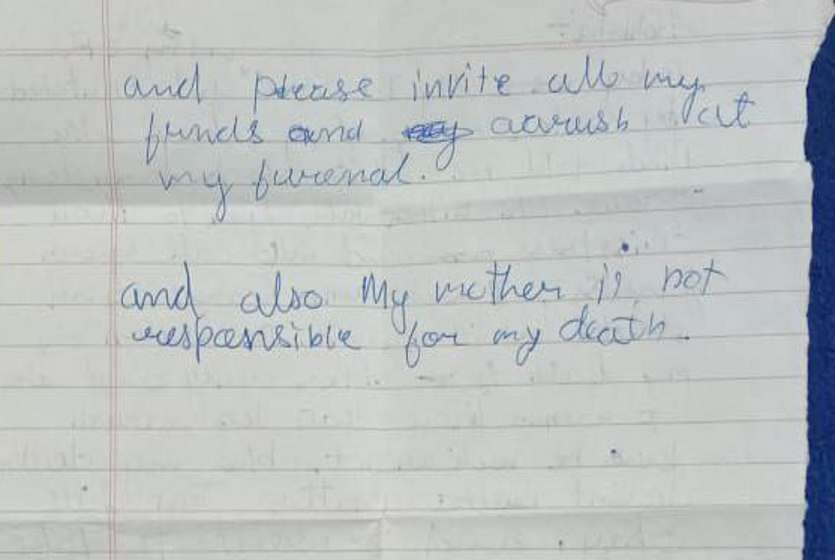 and please invite all my
funds and aarush at
my furenal.
and also My mother is not
responsible for my death.